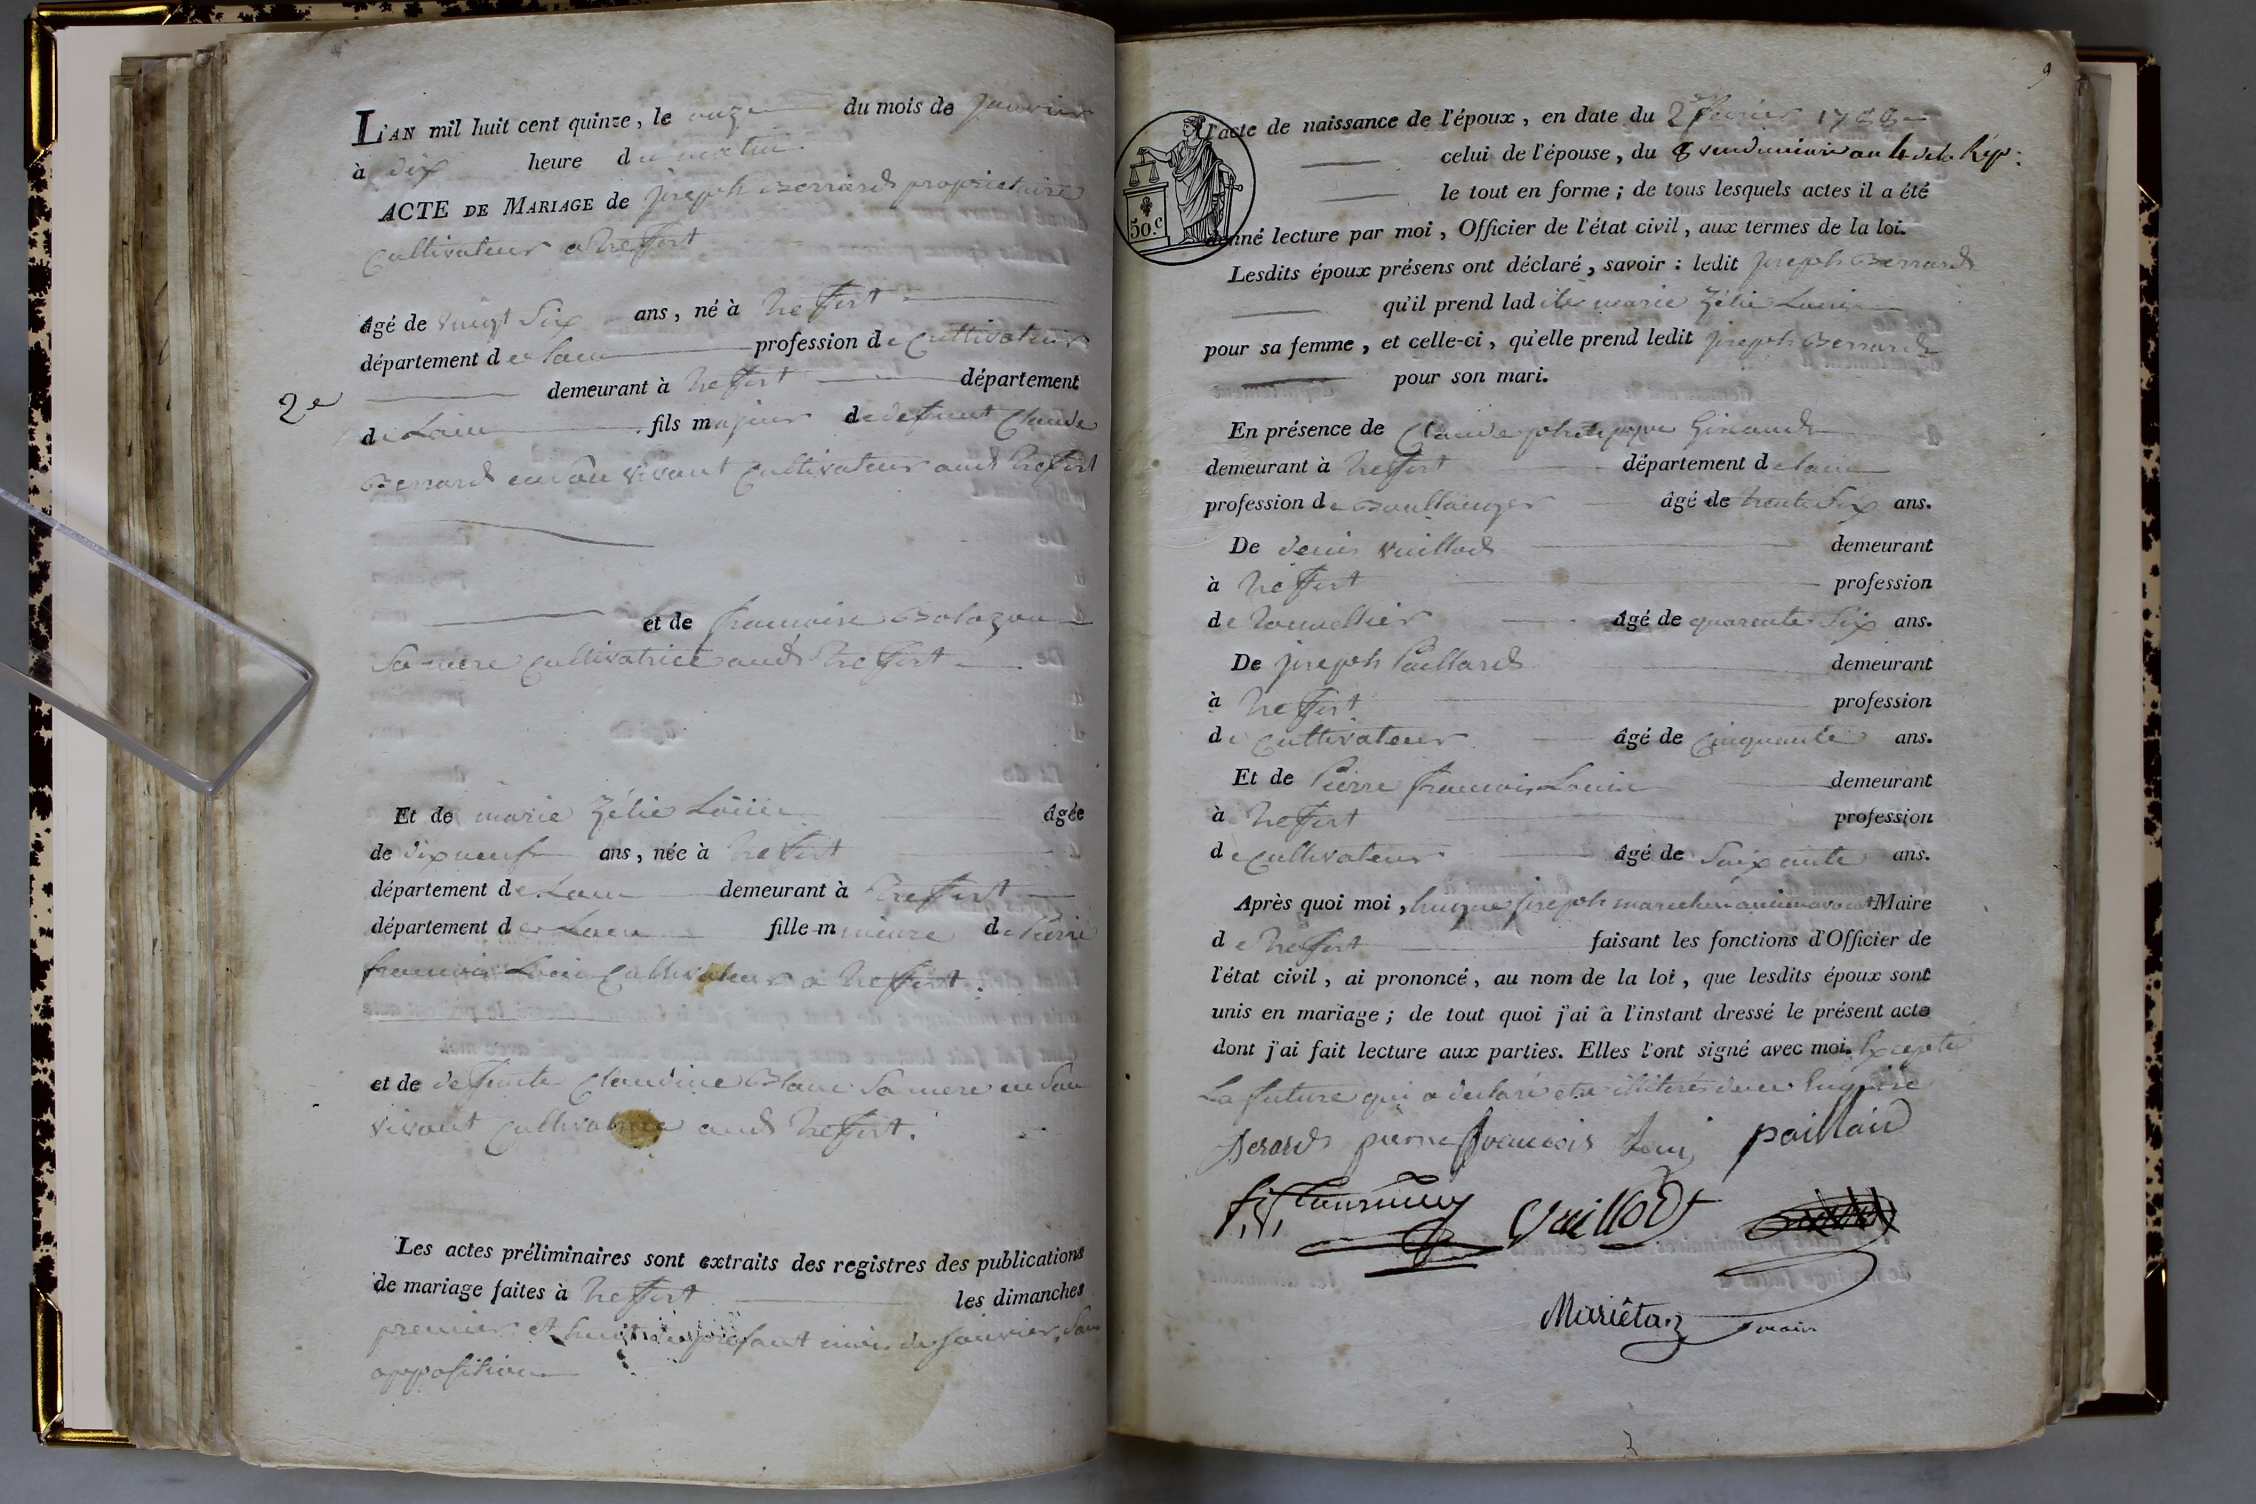 L'AN mil huit cent quinze, le onze du mois de Janvier
à dix heure du matin
ACTE DE MARIAGE de Joseph Berrard propriétaire
Cultivateur a Treffort
âgé de vingt Six ans, né à Treffort
département de lain profession de Cultivateur
demeurant à Treffort département
2e
de Lain fils majeur de defunt Claude
Berrard en son vivant Cultivateur aud Treffort
et de francoise
Sa mere Cultivatrice aud Treffort
Et de marie Zélie Louis Agée
de dix neuf ans, née à Treffort
département de Lain demeurant à Treffort
département de Lain fille mineure de Pierre
francois Cultivateur a Treffort.
et de defunte Claudine Blanc Sa mere en Son
vivant Cultivatrice aud Treffort.
Les actes préliminaires sont extraits des registres des publications
de mariage faites à Treffort les dimanches
premier et huit du présent mois de Janvier, Sans
opposition
9
l'acte de naissance de l'époux, en date du 2 février 1788
celui de l'épouse, du 8 vendemiaire an 4 de la Rép:
le tout en forme; de tous lesquels actes il a été
50.c
donné lecture par moi, Officier de l'état civil, aux termes de la loi.
Lesdits époux présens ont déclaré, savoir: ledit Joseph Berrard
qu'il prend ladite marie Zélie
pour sa femme, et celle-ci, qu'elle prend ledit Joseph Berrard
pour son mari.
En présence de Claude philippe Giraud
demeurant à Treffort département de lain
profession de Boullanger âgé de trente Six ans.
De denis vuillod demeurant
à Treffort profession
de Tonnellier âgé de quarente Six ans.
De Joseph Paillard demeurant
à Treffort profession
de Cultivateur âgé de Cinquante ans.
Et de Pierre francois demeurant
à Treffort profession
de Cultivateur âgé de Soixante ans.
Après quoi moi, Joseph Maire
de Treffort faisant les fonctions d'Officier de
l'état civil, ai prononcé, au nom de la loi, que lesdits époux sont
unis en mariage; de tout quoi j'ai à l'instant dressé le présent acte
dont j'ai fait lecture aux parties. Elles l'ont signé avec moi. Excepté
La future qui a declaré etre illiterée de ce Enquise
Berard pierre francois paillard
Vuillod
Mariétan maire